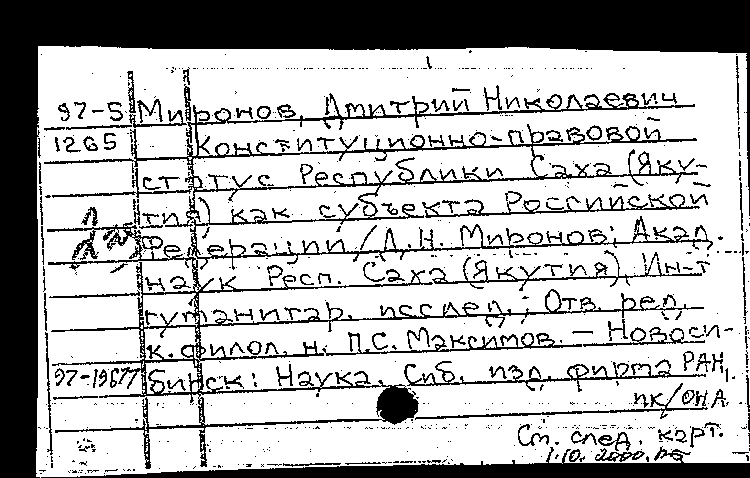 97-5 Миронов, Дмитрий Николаевич
1265 Конституционно-правовой
статус Республики Саха (Яку-
тия) как субъекта Российской
Федерации / Д.Н. Миронов; Акад.
наук Респ. Саха (Якутия), Ин-т
гуманитар. исслед.; Отв. ред.
к. филол. н. П.С. Максимов. — Новоси-
97-19677 бирск: Наука. Сиб. изд. фирма РАН,
пк/ОНА
См. след. карт.
1.10. 2000.